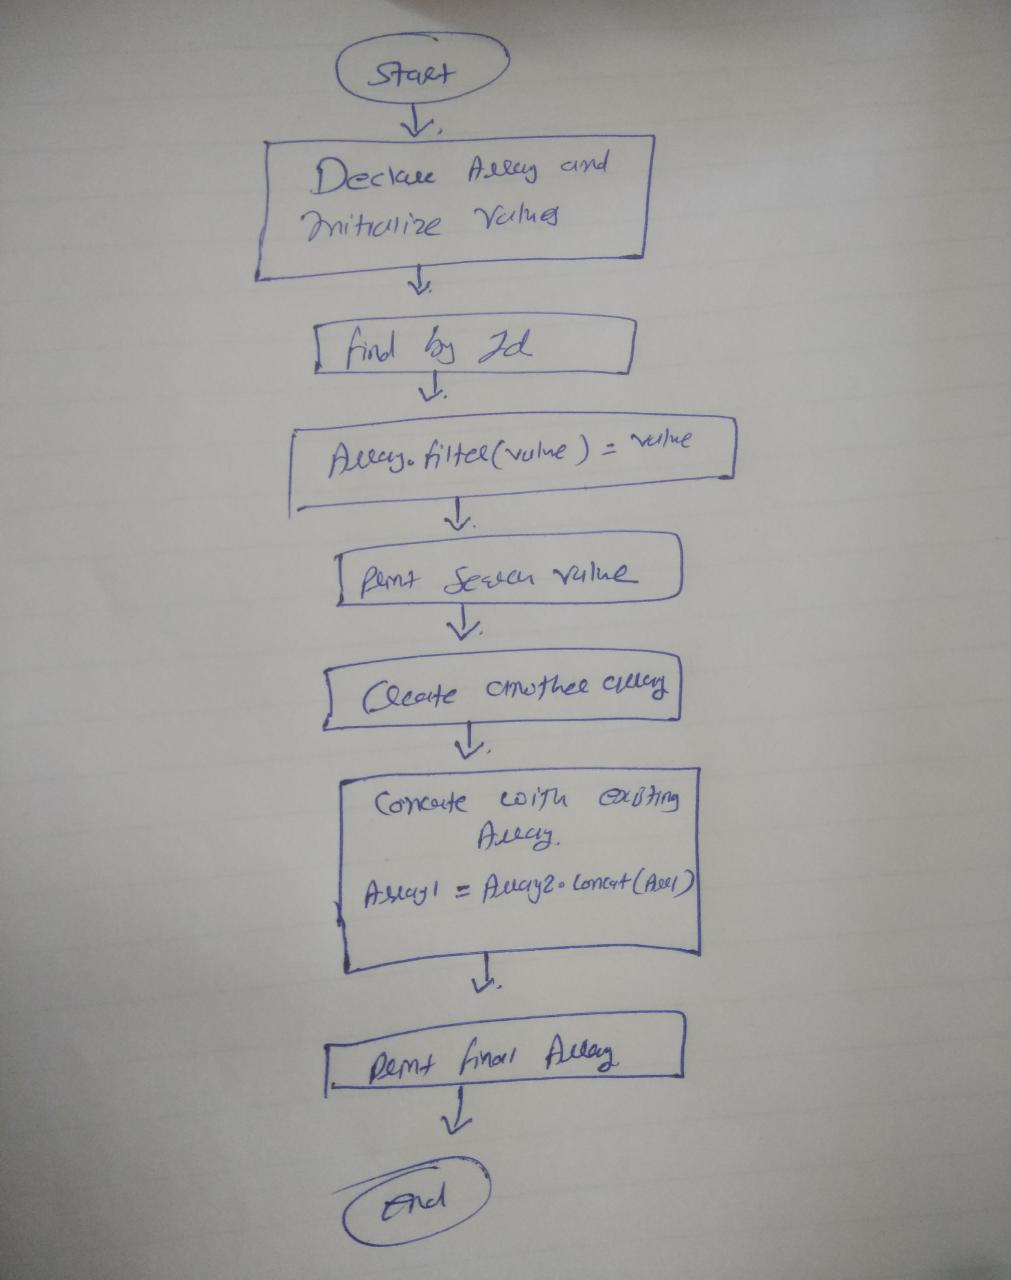 Start
Declare Array and
Initialize values
find by Id
Array.filter(value) = value
Print Search value
Create another array
Concate with existing
Array.
Array1 = Array2.concat(Arr1)
Print final Array
End